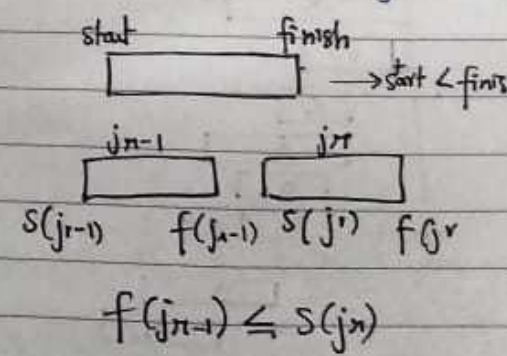 start finish
→ start < finis
jr-1 jr
S(jr-1) f(jr-1) S(jr) f(jr
f(jr-1) ≤ S(jr)